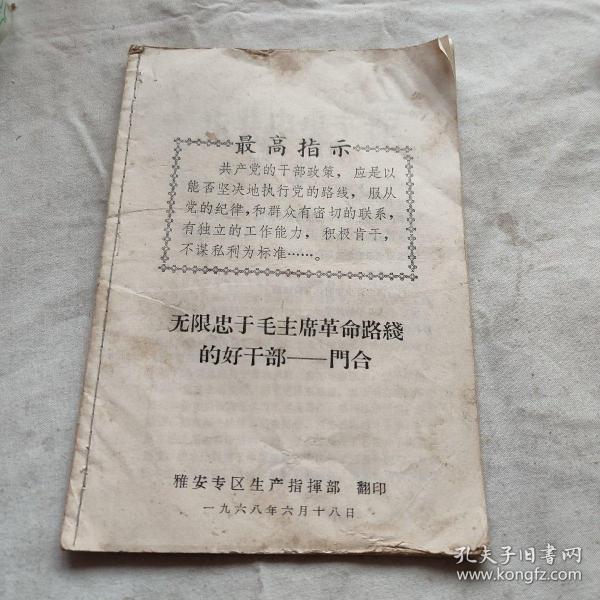 最高指示
共产党的干部政策，应是以
能否坚决地执行党的路线，服从
党的纪律，和群众有密切的联系，
有独立的工作能力，积极肯干，
不谋私利为标准……。
无限忠于毛主席革命路綫
的好干部——門合
雅安专区生产指揮部 翻印
一九六八年六月十八日
孔夫子旧书网
www.kongfz.com